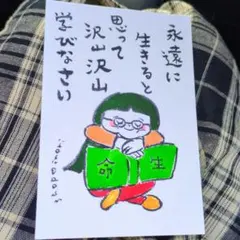 永遠に
生きると
思って
沢山沢山
学びなさい
生命